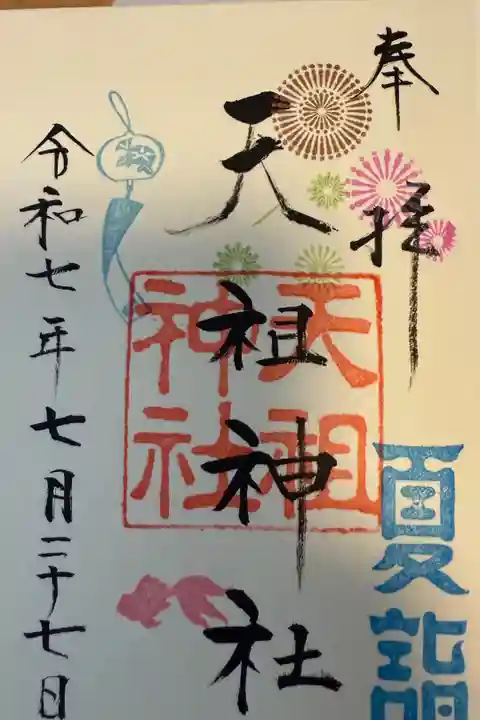 奉拝
夏詣
天祖神社
天祖神社
令和七年七月二十七日